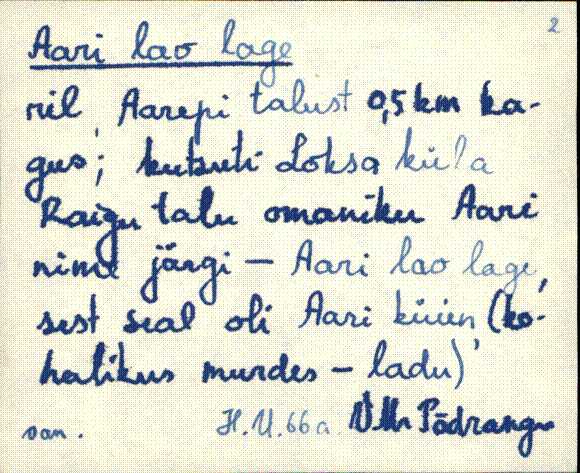 2
Aari lao lage
nil, Aarepi talust 0,5 km ka-
gus; kutsuti Loksa küla
Raigu talu omaniku Aari
nime järgi — Aari lao lage,
sest seal oli Aari küün (ko-
halikus murdes — ladu)
van. H.U. 66 a. Põdrangu